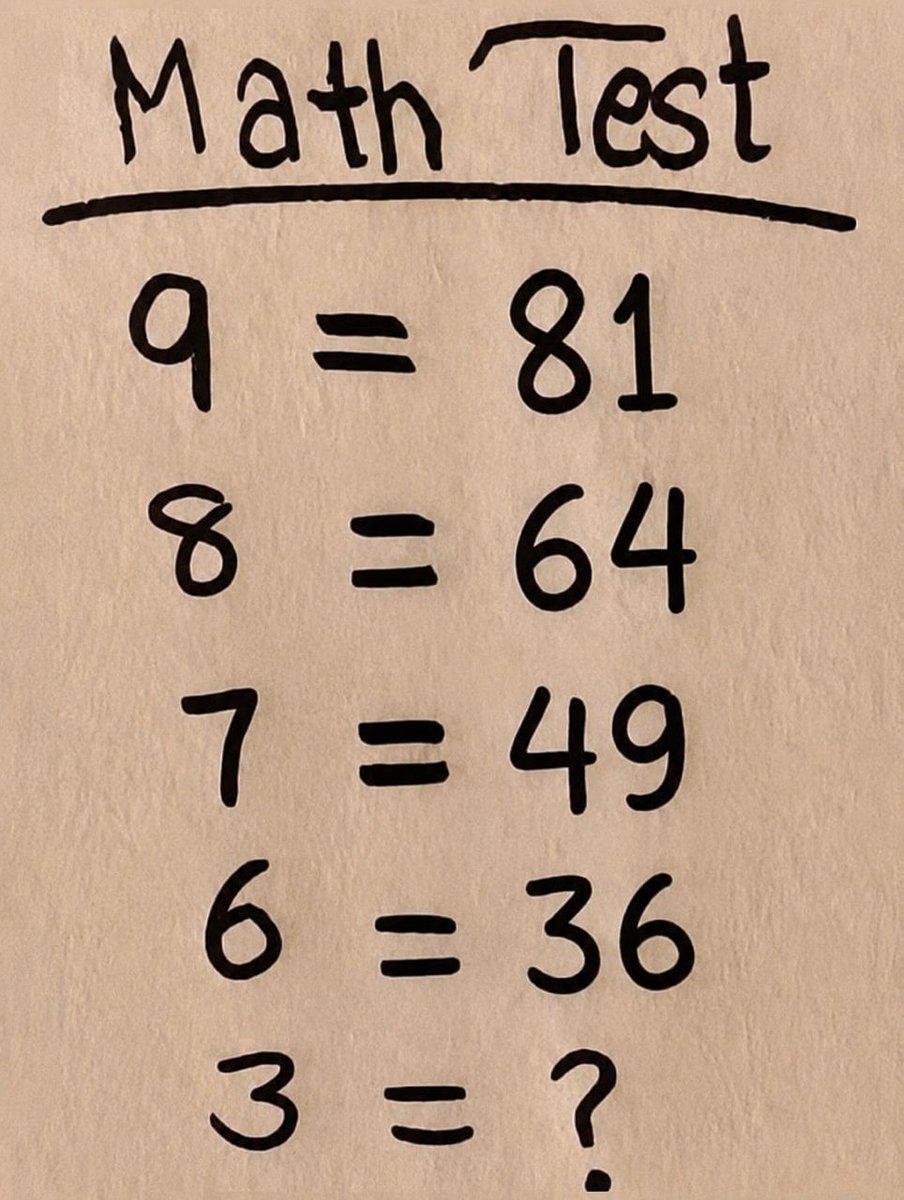 Math Test
9 = 81
8 = 64
7 = 49
6 = 36
3 = ?